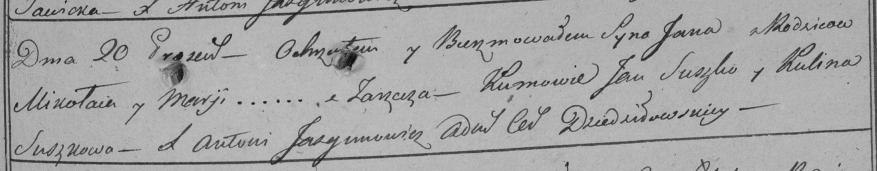 Sawicka — X Antoni
Dnia 20 — Ochrzciłem y Bierzmowałem Syna Jana z Rodzicow
Mikołaia y Marji ....... z Zarzcza — Kumowie Jan Suszko y Kulina
Suszkowa — X Antoni Jasgmowicz Adm Ced Dziedziłowskiey —